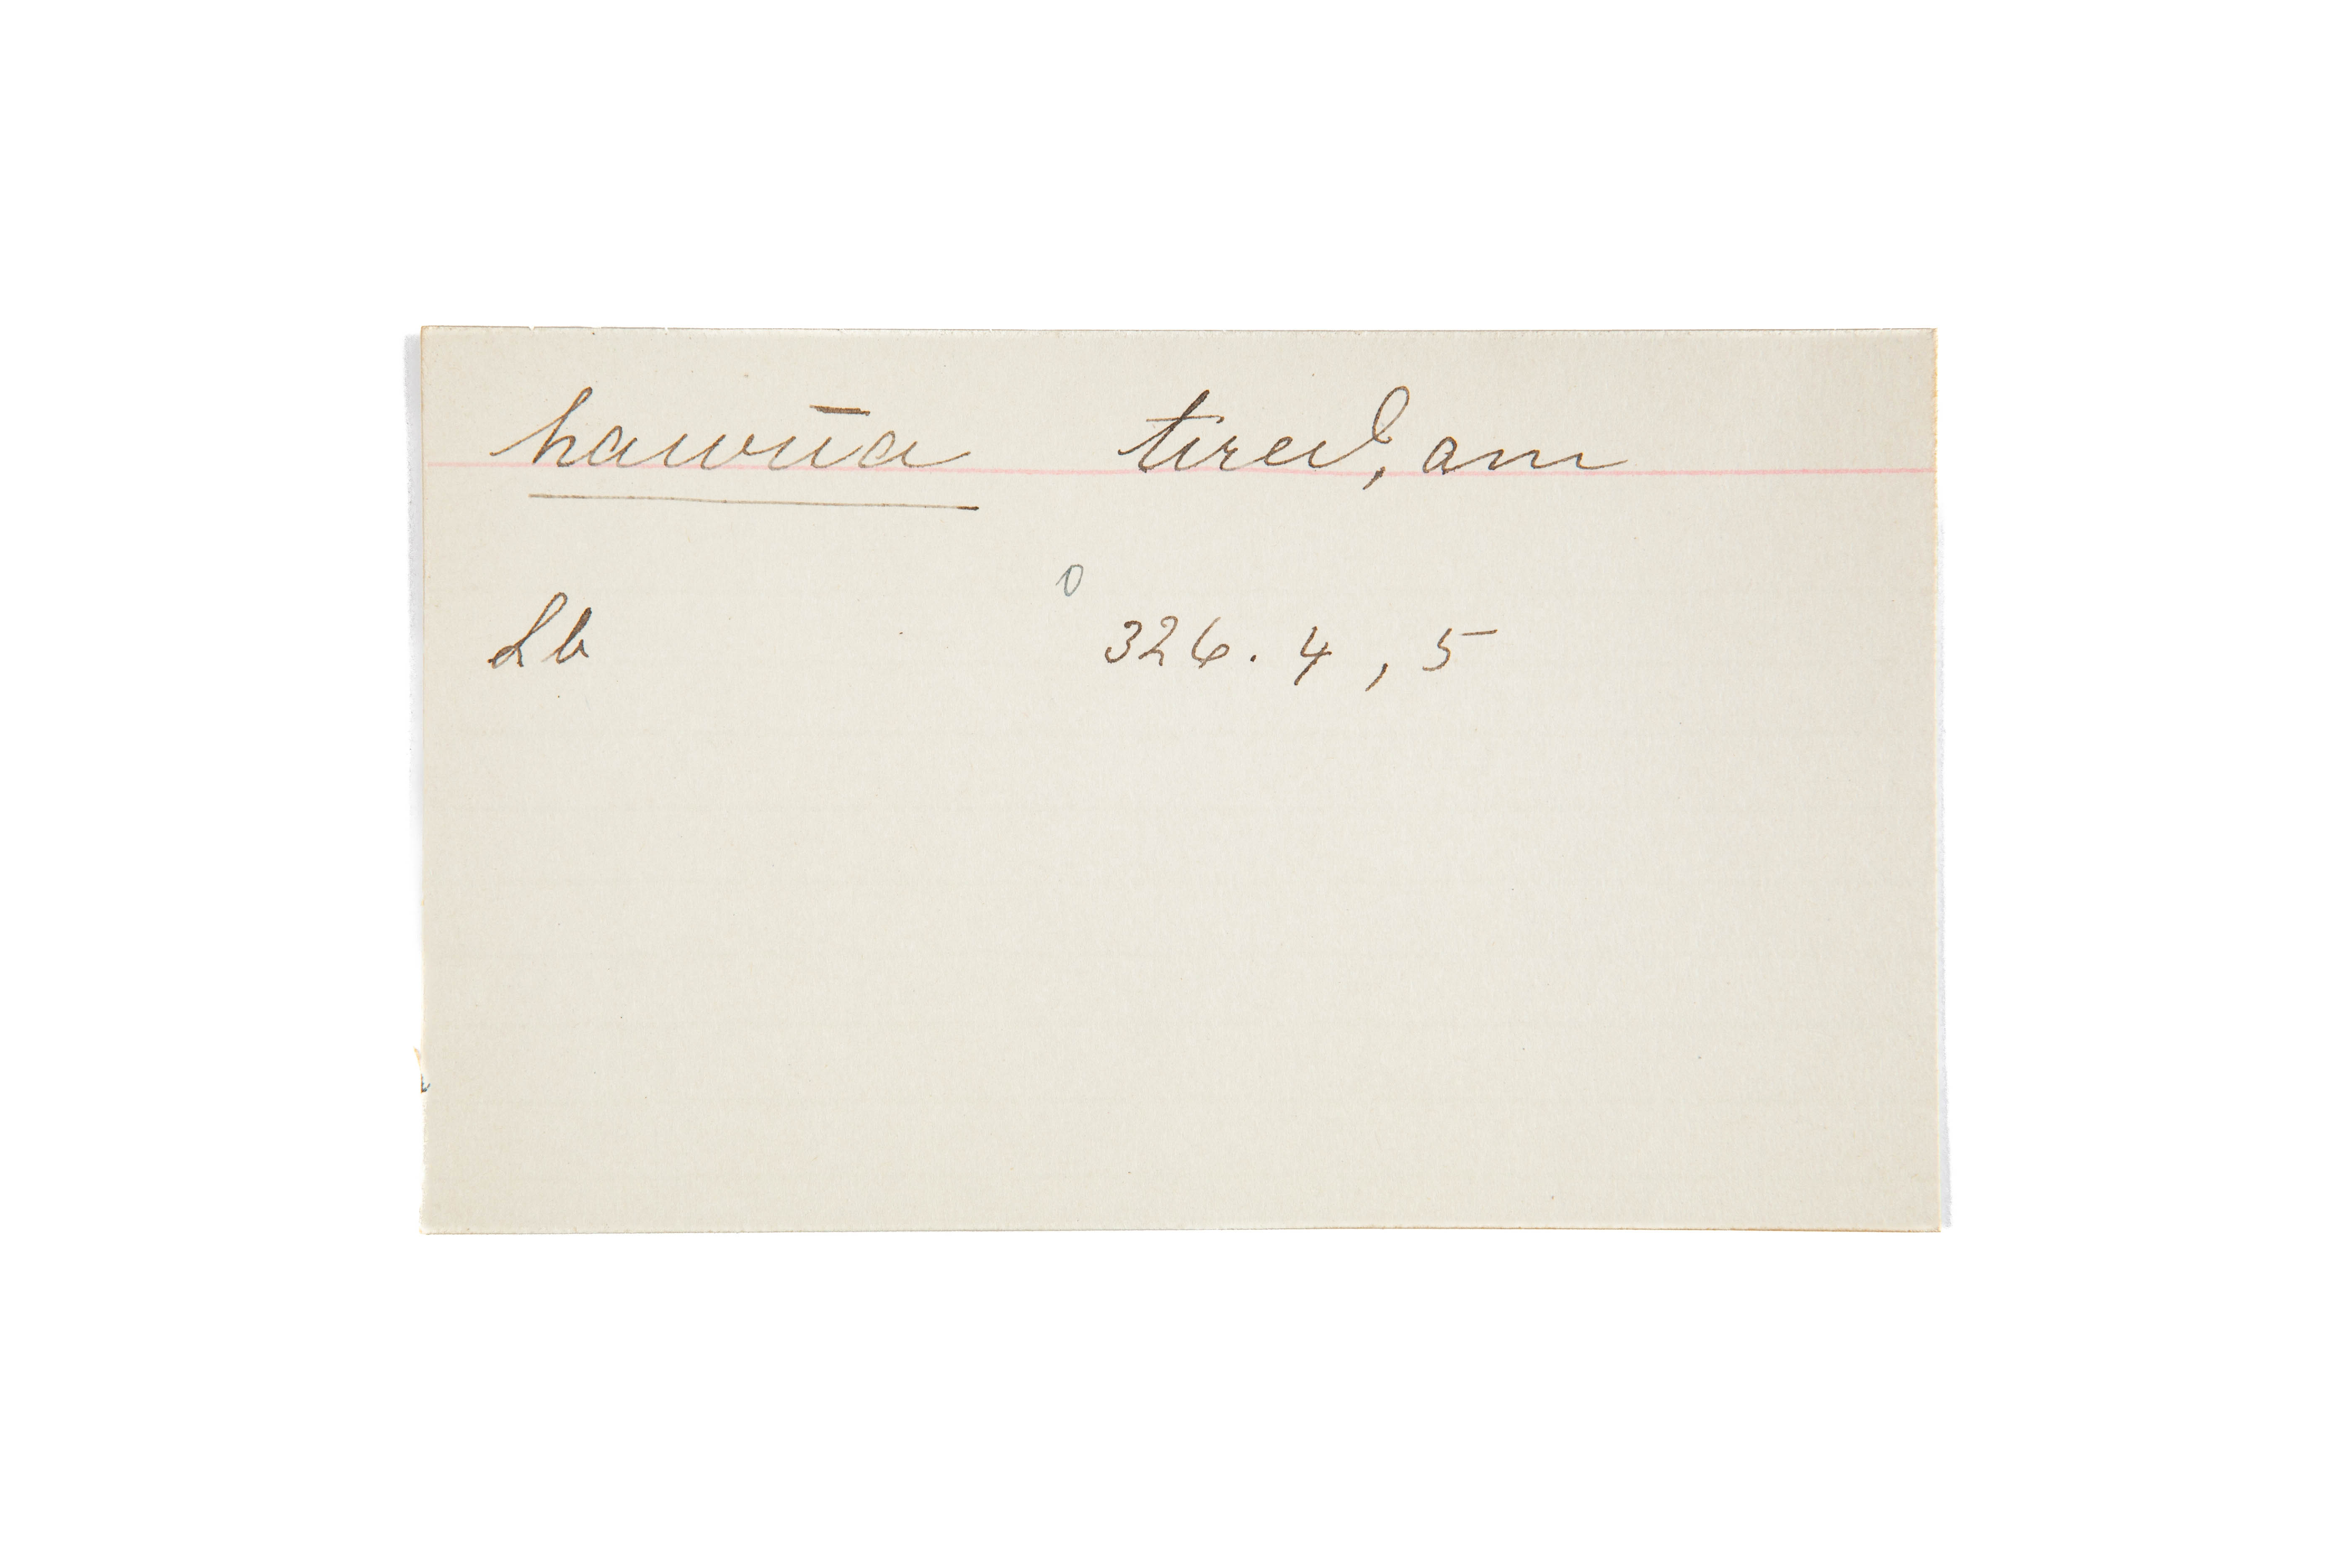 hawūa tired, am
0
Lb 326. 4, 5